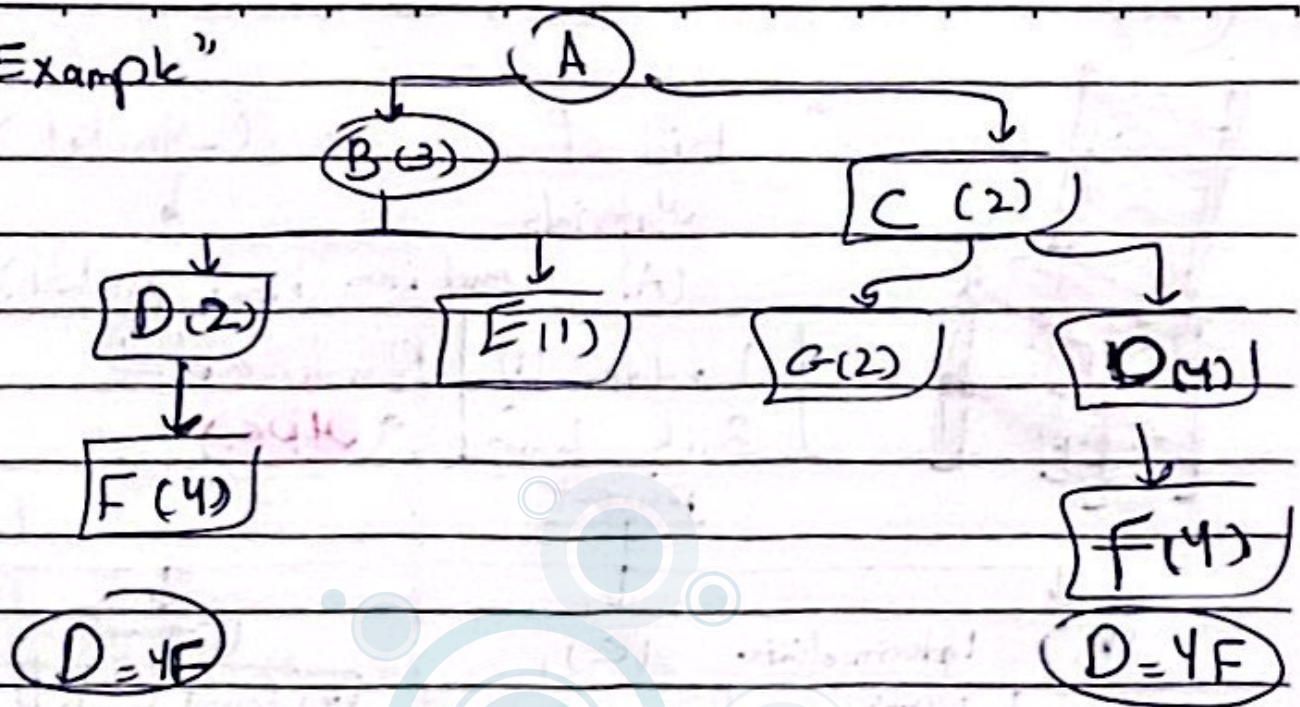 Example"
A
B(3)
C (2)
D(2) E(1) G(2) D(4)
F(4)
F(4)
D=4F D=4F